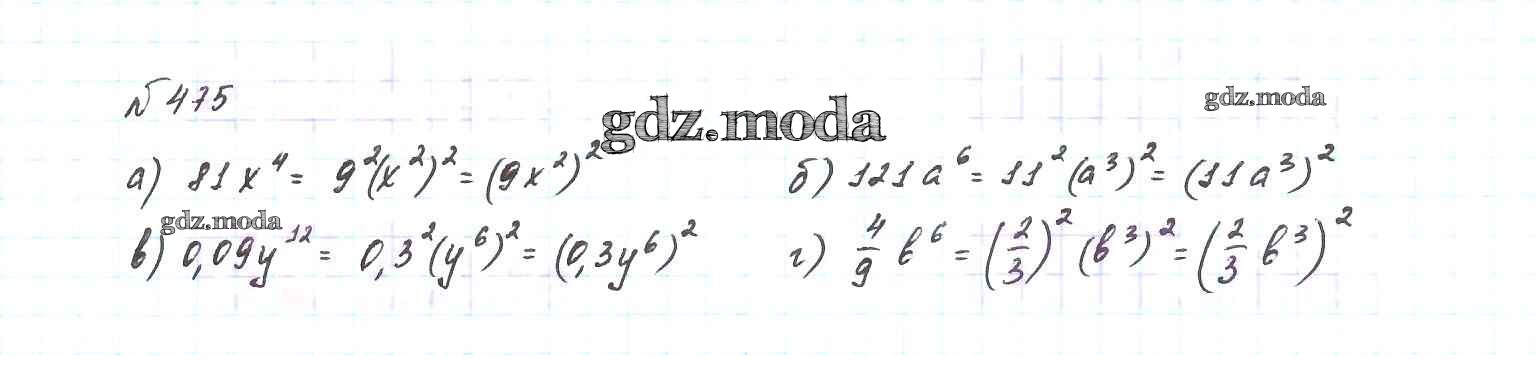 № 475
gdz.moda
gdz.moda
а) 81x⁴ = 9²(x²)² = (9x²)²
б) 121a⁶ = 11²(a³)² = (11a³)²
gdz.moda
в) 0,09y¹² = 0,3²(y⁶)² = (0,3y⁶)²
г) 4/9 b⁶ = (2/3)² (b³)² = (2/3 b³)²